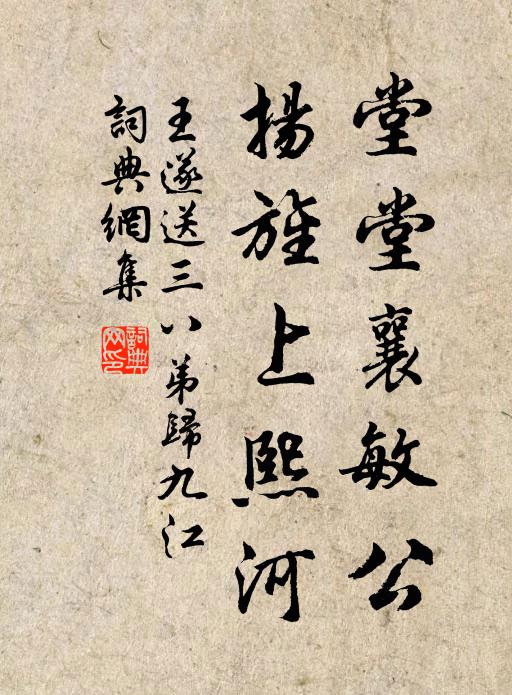 堂堂襄敏公
揚旌上熙河
王遂送三八弟歸九江
詞典網集
詞典网印